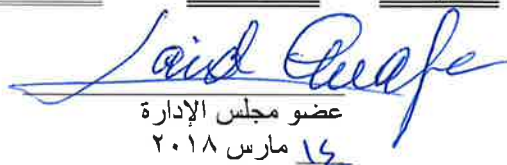 عضو مجلس الإدارة
١٤ مارس ٢٠١٨